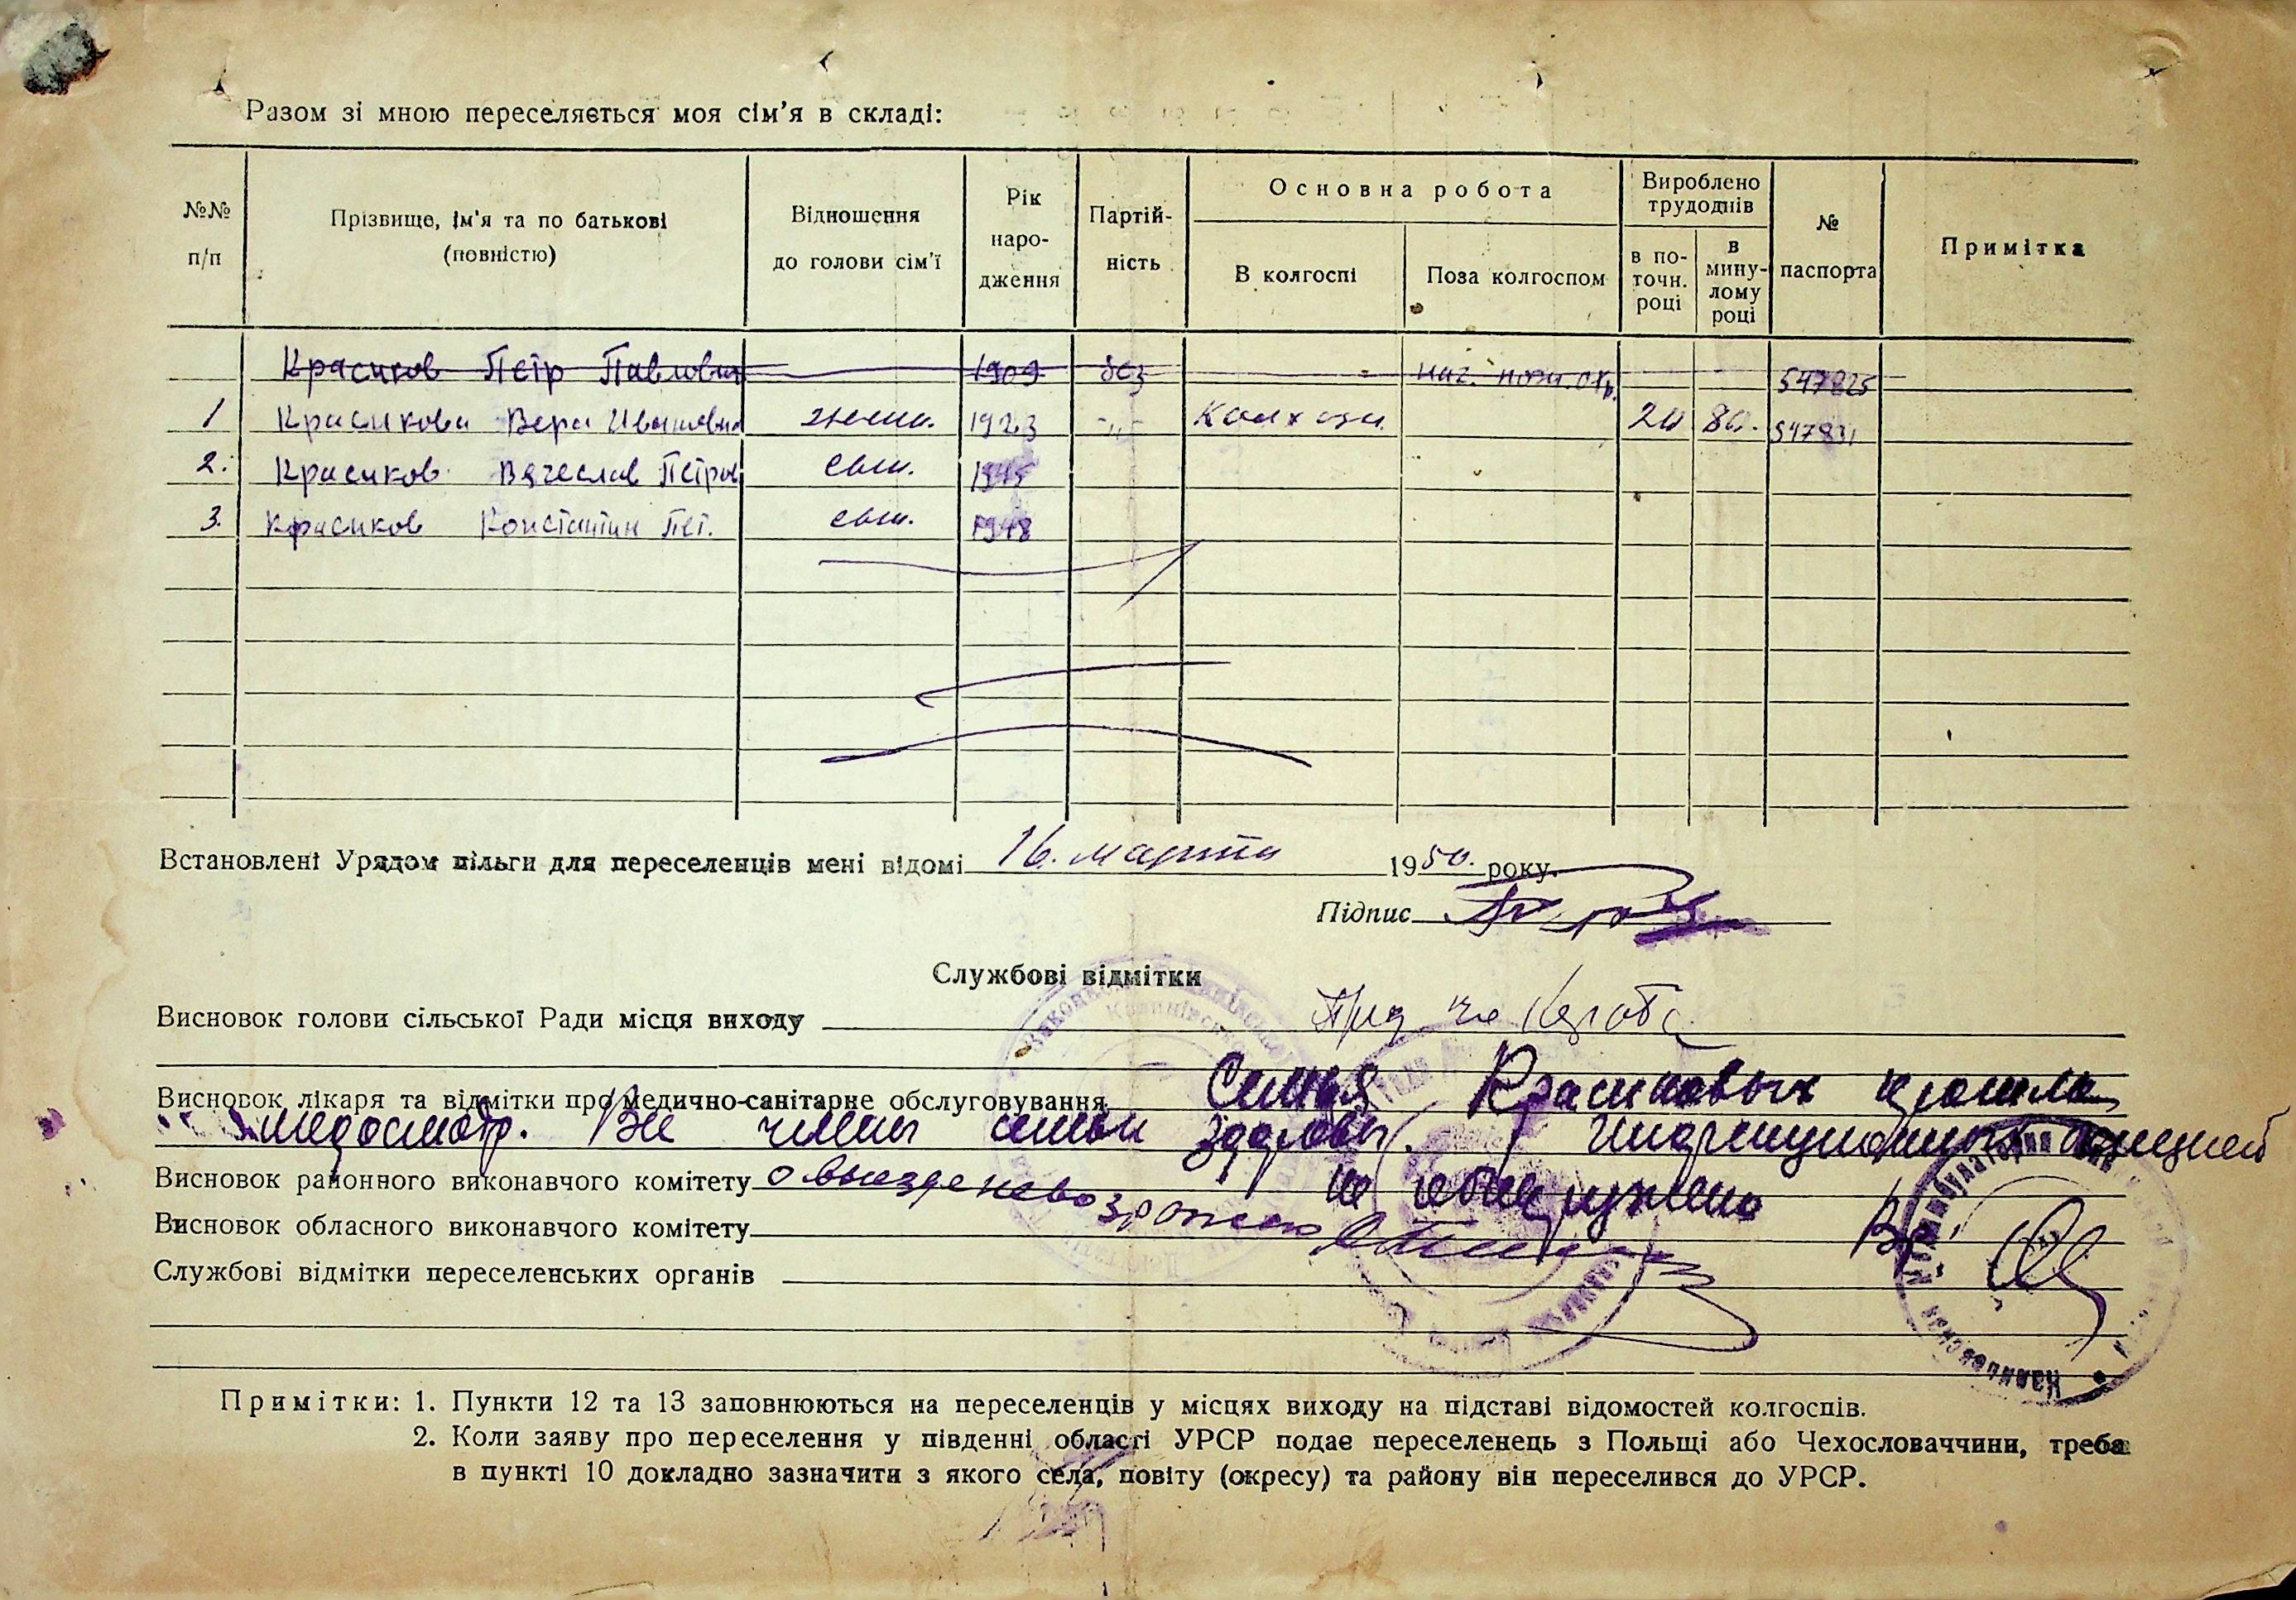 Разом зі мною переселяється моя сім'я в складі:
№№ п/п
Прізвище, ім'я та по батькові (повністю)
Відношення до голови сім'ї
Рік народження
Партійність
Основна робота
В колгоспі
Поза колгоспом
Вироблено трудоднів
в поточн. році
в минулому році
№ паспорта
Примітка
Красиков Петр Павлович 1909 без нач. пож. охр. 547825
1 Красикова Вера Ивановна жена. 1923 -"- Колхозн. 20 80. 547831
2. Красиков Вячеслав Петров сын. 1945
3. Красиков Константин Пет. сын. 1948
Встановлені Урядом пільги для переселенців мені відомі 16. марта 1950. року.
Підпис
Службові відмітки
Висновок голови сільської Ради місця виходу
Висновок лікаря та відмітки про медично-санітарне обслуговування Семья Красиковых прошла
медосмотр. Все члены семьи здоровы.
Висновок районного виконавчого комітету о выезде не возражаю не обнаружено
Висновок обласного виконавчого комітету Вр.
Службові відмітки переселенських органів
Примітки: 1. Пункти 12 та 13 заповнюються на переселенців у місцях виходу на підставі відомостей колгоспів.
2. Коли заяву про переселення у південні області УРСР подає переселенець з Польщі або Чехословаччини, треба
в пункті 10 докладно зазначити з якого села, повіту (окресу) та району він переселився до УРСР.